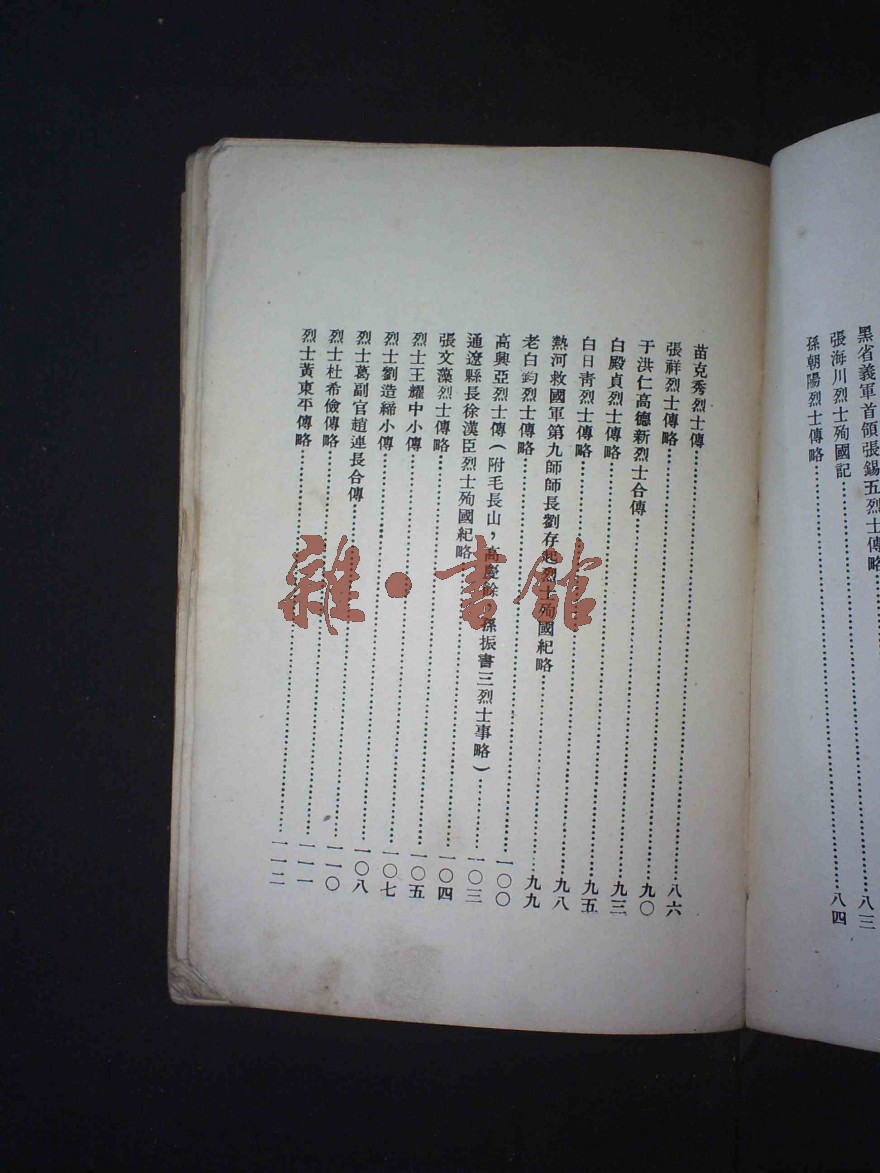 黑省義軍首領張錫五烈士傳略
張海川烈士殉國記……八三
孫朝陽烈士傳略……八四
苗克秀烈士傳……八六
張祥烈士傳略……九〇
于洪仁高德新烈士合傳……九三
白殿貞烈士傳略……九五
白日靑烈士傳略……九八
熱河救國軍第九師師長劉存起烈士殉國紀略……九九
老白鈞烈士傳略……一〇〇
高興亞烈士傳（附毛長山，高慶餘，孫振書三烈士事略）……一〇三
通遼縣長徐漢臣烈士殉國紀略……一〇四
張文藻烈士傳略……一〇五
烈士王耀中小傳……一〇七
烈士劉造締小傳……一〇八
烈士葛副官趙連長合傳……一一〇
烈士杜希儉傳略……一一一
烈士黃東平傳略……一一二
雜·書館